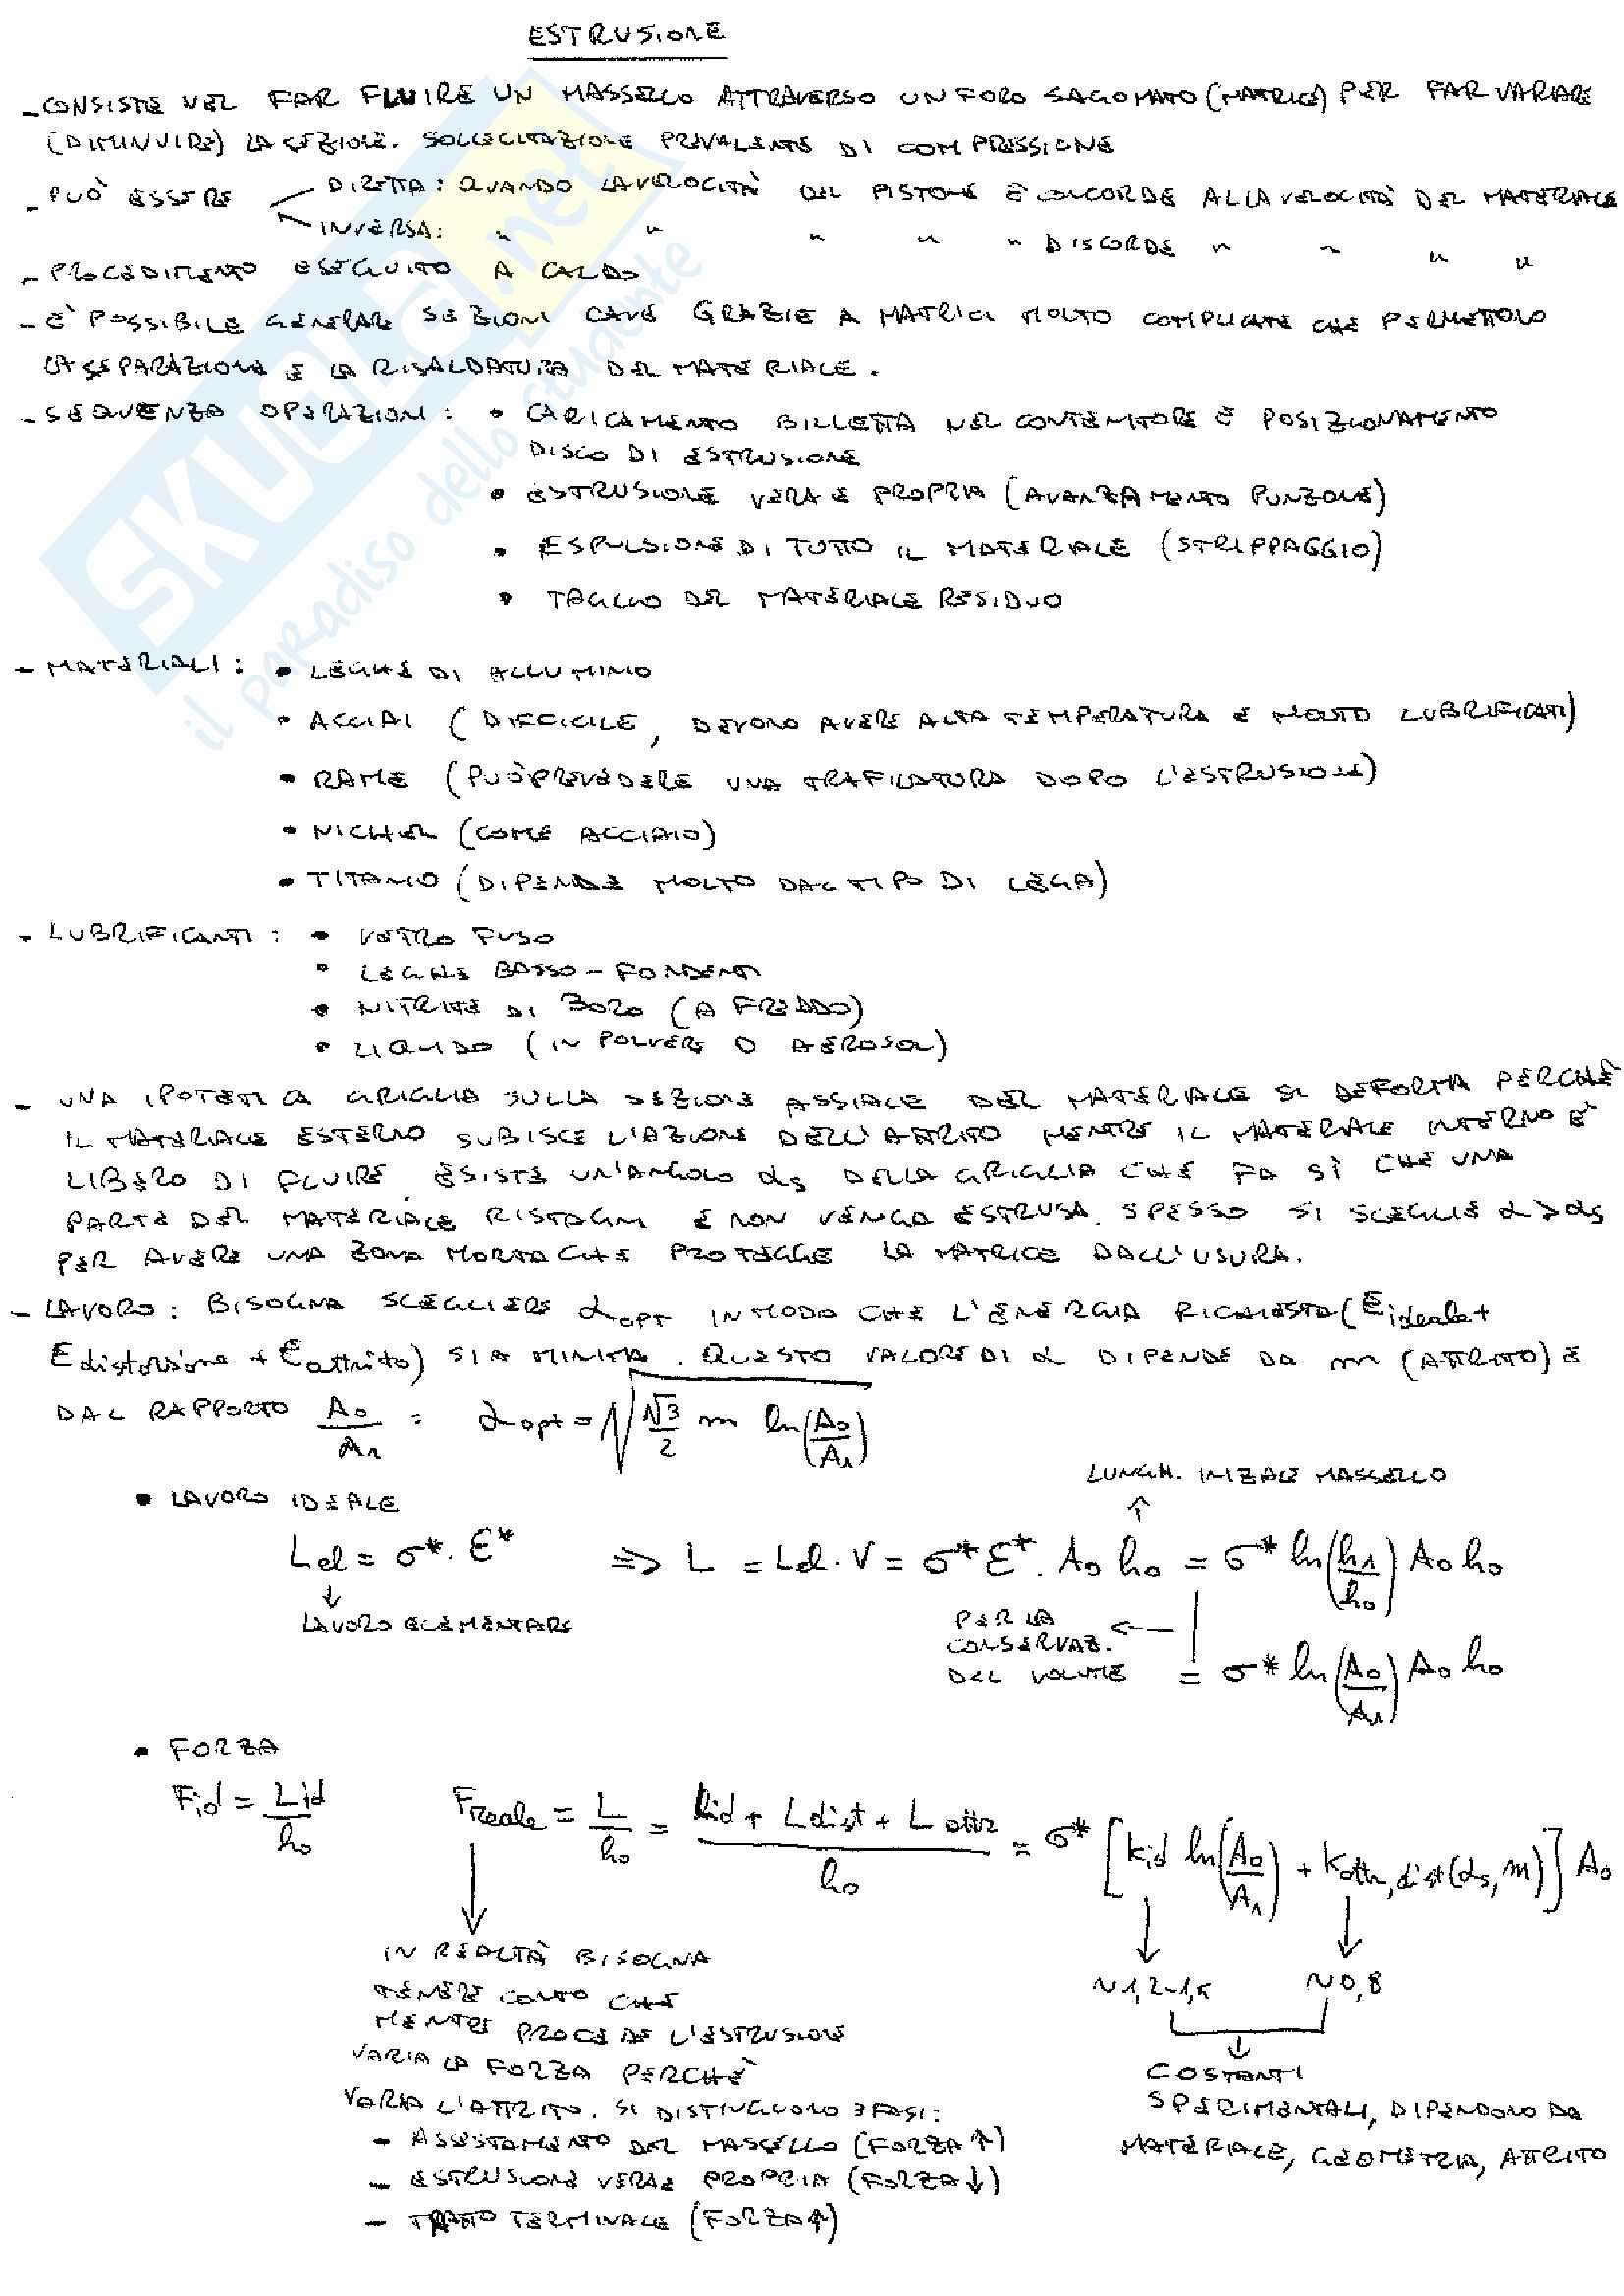 ESTRUSIONE
- CONSISTE NEL FAR FLUIRE UN MASSELLO ATTRAVERSO UN FORO SAGOMATO (MATRICE) PER FAR VARIARE
(DIMINUIRE) LA SEZIONE. SOLLECITAZIONE PREVALENTE DI COMPRESSIONE
- PUÒ ESSERE DIRETTA: QUANDO LA VELOCITÀ DEL PISTONE È CONCORDE ALLA VELOCITÀ DEL MATERIALE
INVERSA: " " " " " DISCORDE " " " "
- PROCEDIMENTO ESEGUITO A CALDO
- È POSSIBILE GENERARE SEZIONI CAVE GRAZIE A MATRICI MOLTO COMPLICATE CHE PERMETTONO
LA SEPARAZIONE E LA RISALDATURA DEL MATERIALE.
- SEQUENZA OPERAZIONI: • CARICAMENTO BILLETTA NEL CONTENITORE E POSIZIONAMENTO
DISCO DI ESTRUSIONE
• ESTRUSIONE VERA E PROPRIA (AVANZAMENTO PUNZONE)
• ESPULSIONE DI TUTTO IL MATERIALE (STRIPPAGGIO)
• TAGLIO DEL MATERIALE RESIDUO
- MATERIALI: • LEGHE DI ALLUMINIO
• ACCIAI (DIFFICILE, DEVONO AVERE ALTA TEMPERATURA E MOLTO LUBRIFICATI)
• RAME (PUÒ PREVEDERE UNA TRAFILATURA DOPO L'ESTRUSIONE)
• NICHEL (COME ACCIAIO)
• TITANIO (DIPENDE MOLTO DAL TIPO DI LEGA)
- LUBRIFICANTI: • VETRO FUSO
• LEGHE BASSO-FONDENTI
• NITRITE DI BORO (A FREDDO)
• LIQUIDO (IN POLVERE O AEROSOL)
- UNA IPOTETICA GRIGLIA SULLA SEZIONE ASSIALE DEL MATERIALE SI DEFORMA PERCHÈ
IL MATERIALE ESTERNO SUBISCE L'AZIONE DELL'ATTRITO MENTRE IL MATERIALE INTERNO È
LIBERO DI FLUIRE. ESISTE UN'ANGOLO αs DELLA GRIGLIA CHE FA SÌ CHE UNA
PARTE DEL MATERIALE RISTAGNI E NON VENGA ESTRUSA. SPESSO SI SCEGLIE α>αs
PER AVERE UNA ZONA MORTA CHE PROTEGGE LA MATRICE DALL'USURA.
- LAVORO: BISOGNA SCEGLIERE αopt IN MODO CHE L'ENERGIA RICHIESTA (Eideale+
Edistorsione + Eattrito) SIA MINIMA. QUESTO VALORE DI α DIPENDE DA m (ATTRITO) E
DAL RAPPORTO A0/A1 : αopt = √(√3/2 m ln(A0/A1))
LUNGH. INIZALE MASSELLO
• LAVORO IDEALE
Lel = σ*. ε* => L = Lel · V = σ* ε* . A0 h0 = σ* ln(h1/h0) A0 h0
LAVORO ELEMENTARE
PER LA
CONSERVAZ.
DEL VOLUME = σ* ln(A0/A1) A0 h0
• FORZA
Fid = Lid/h0 Freale = L/h0 = (Lid + Ldist + Lattr)/h0 = σ* [kid ln(A0/A1) + kattr,dist(αs, m)] A0
IN REALTÀ BISOGNA
TENERE CONTO CHE
MENTRE PROCEDE L'ESTRUSIONE
VARIA LA FORZA PERCHÈ
VARIA L'ATTRITO. SI DISTINGUONO 3 FASI:
- ASSESTAMENTO DEL MASSELLO (FORZA ↑)
- ESTRUSIONE VERA E PROPRIA (FORZA ↓)
- TRATTO TERMINALE (FORZA ↑)
~ 1,2-1,5 ~ 0,8
COSTANTI
SPERIMENTALI, DIPENDONO DA
MATERIALE, GEOMETRIA, ATTRITO
SKUOLA.net
il paradiso dello studente